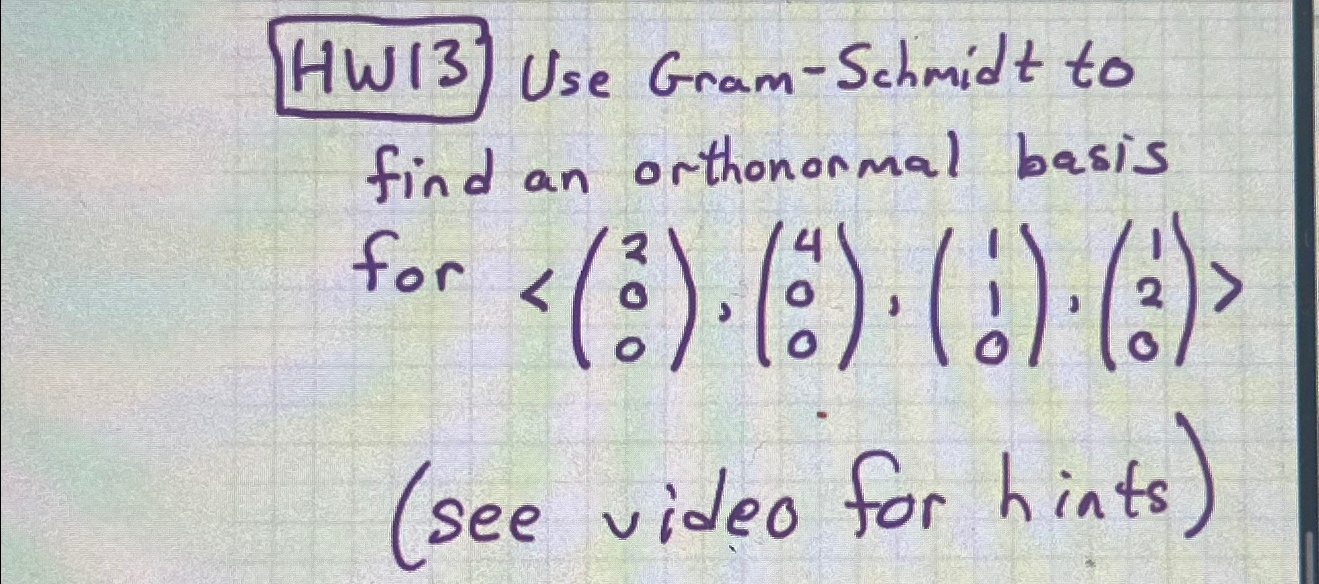 HW13 Use Gram-Schmidt to
find an orthonormal basis
for <(2 0 0), (4 0 0), (1 1 0), (1 2 0)>
(see video for hints)